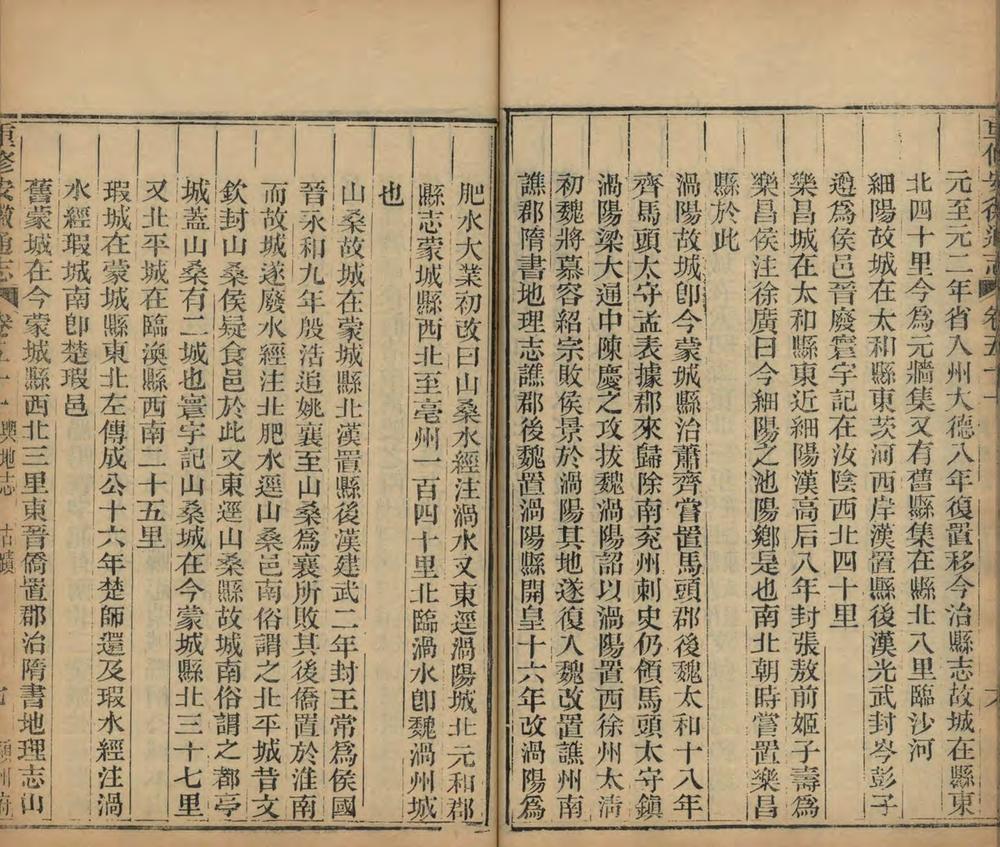 元至元二年省入州大德八年復置移今治縣志故城在縣東
北四十里今爲元牆集又有舊縣集在縣北八里臨沙河
細陽故城在太和縣東茨河西岸漢置縣後漢光武封岑彭子
遵爲侯邑晉廢寰宇記在汝陰西北四十里
樂昌城在太和縣東近細陽漢高后八年封張敖前姬子壽爲
樂昌侯注徐廣曰今細陽之池陽鄉是也南北朝時嘗置樂昌
縣於此
渦陽故城卽今蒙城縣治蕭齊嘗置馬頭郡後魏太和十八年
齊馬頭太守孟表據郡來歸除南兖州刺史仍領馬頭太守鎮
渦陽梁大通中陳慶之攻拔魏渦陽詔以渦陽置西徐州太淸
初魏將慕容紹宗敗侯景於渦陽其地遂復入魏改置譙州南
譙郡隋書地理志譙郡後魏置渦陽縣開皇十六年改渦陽爲
肥水大業初改曰山桑水經注渦水又東逕渦陽城北元和郡
縣志蒙城縣西北至亳州一百四十里北臨渦水卽魏渦州城
也
山桑故城在蒙城縣北漢置縣後漢建武二年封王常爲侯國
晉永和九年殷浩追姚襄至山桑爲襄所敗其後僑置於淮南
而故城遂廢水經注北肥水逕山桑邑南俗謂之北平城昔文
欽封山桑侯疑食邑於此又東逕山桑縣故城南俗謂之都亭
城蓋山桑有二城也寰宇記山桑城在今蒙城縣北三十七里
又北平城在臨渙縣西南二十五里
瑕城在蒙城縣東北左傳成公十六年楚師還及瑕水經注渦
水經瑕城南卽楚瑕邑
舊蒙城在今蒙城縣西北三里東晉僑置郡治隋書地理志山
重修安徽通志 卷五十一 輿地志 古蹟